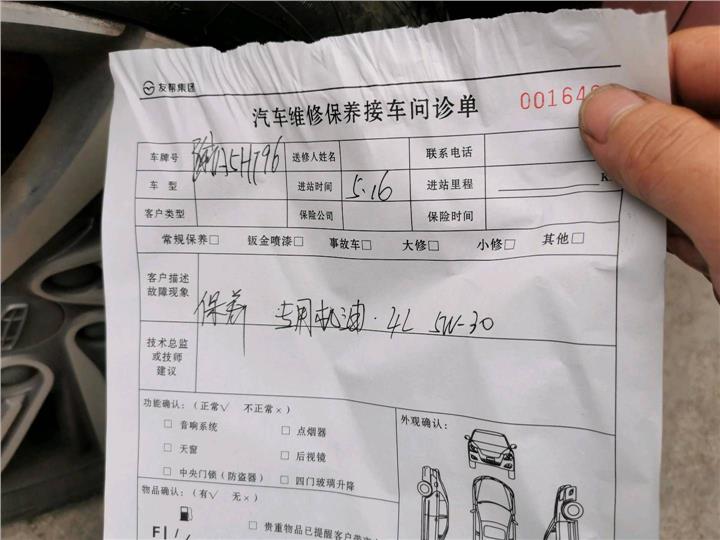 友帮集团
汽车维修保养接车问诊单 001648
车牌号 5HT961 送修人姓名 联系电话
车 型 进站时间 5.16 进站里程 K
客户类型 保险公司 保险时间
常规保养□ 钣金喷漆□ 事故车□ 大修□ 小修□ 其他□
客户描述
故障现象
保养 专用机油·4L 5W-30
技术总监
或技师
建议
功能确认:(正常√ 不正常×) 外观确认:
□ 音响系统 □ 点烟器
□ 天窗 □ 后视镜
□ 中央门锁(防盗器) □ 四门玻璃升降
物品确认:(有√ 无×)
□ 贵重物品已提醒客户带
F